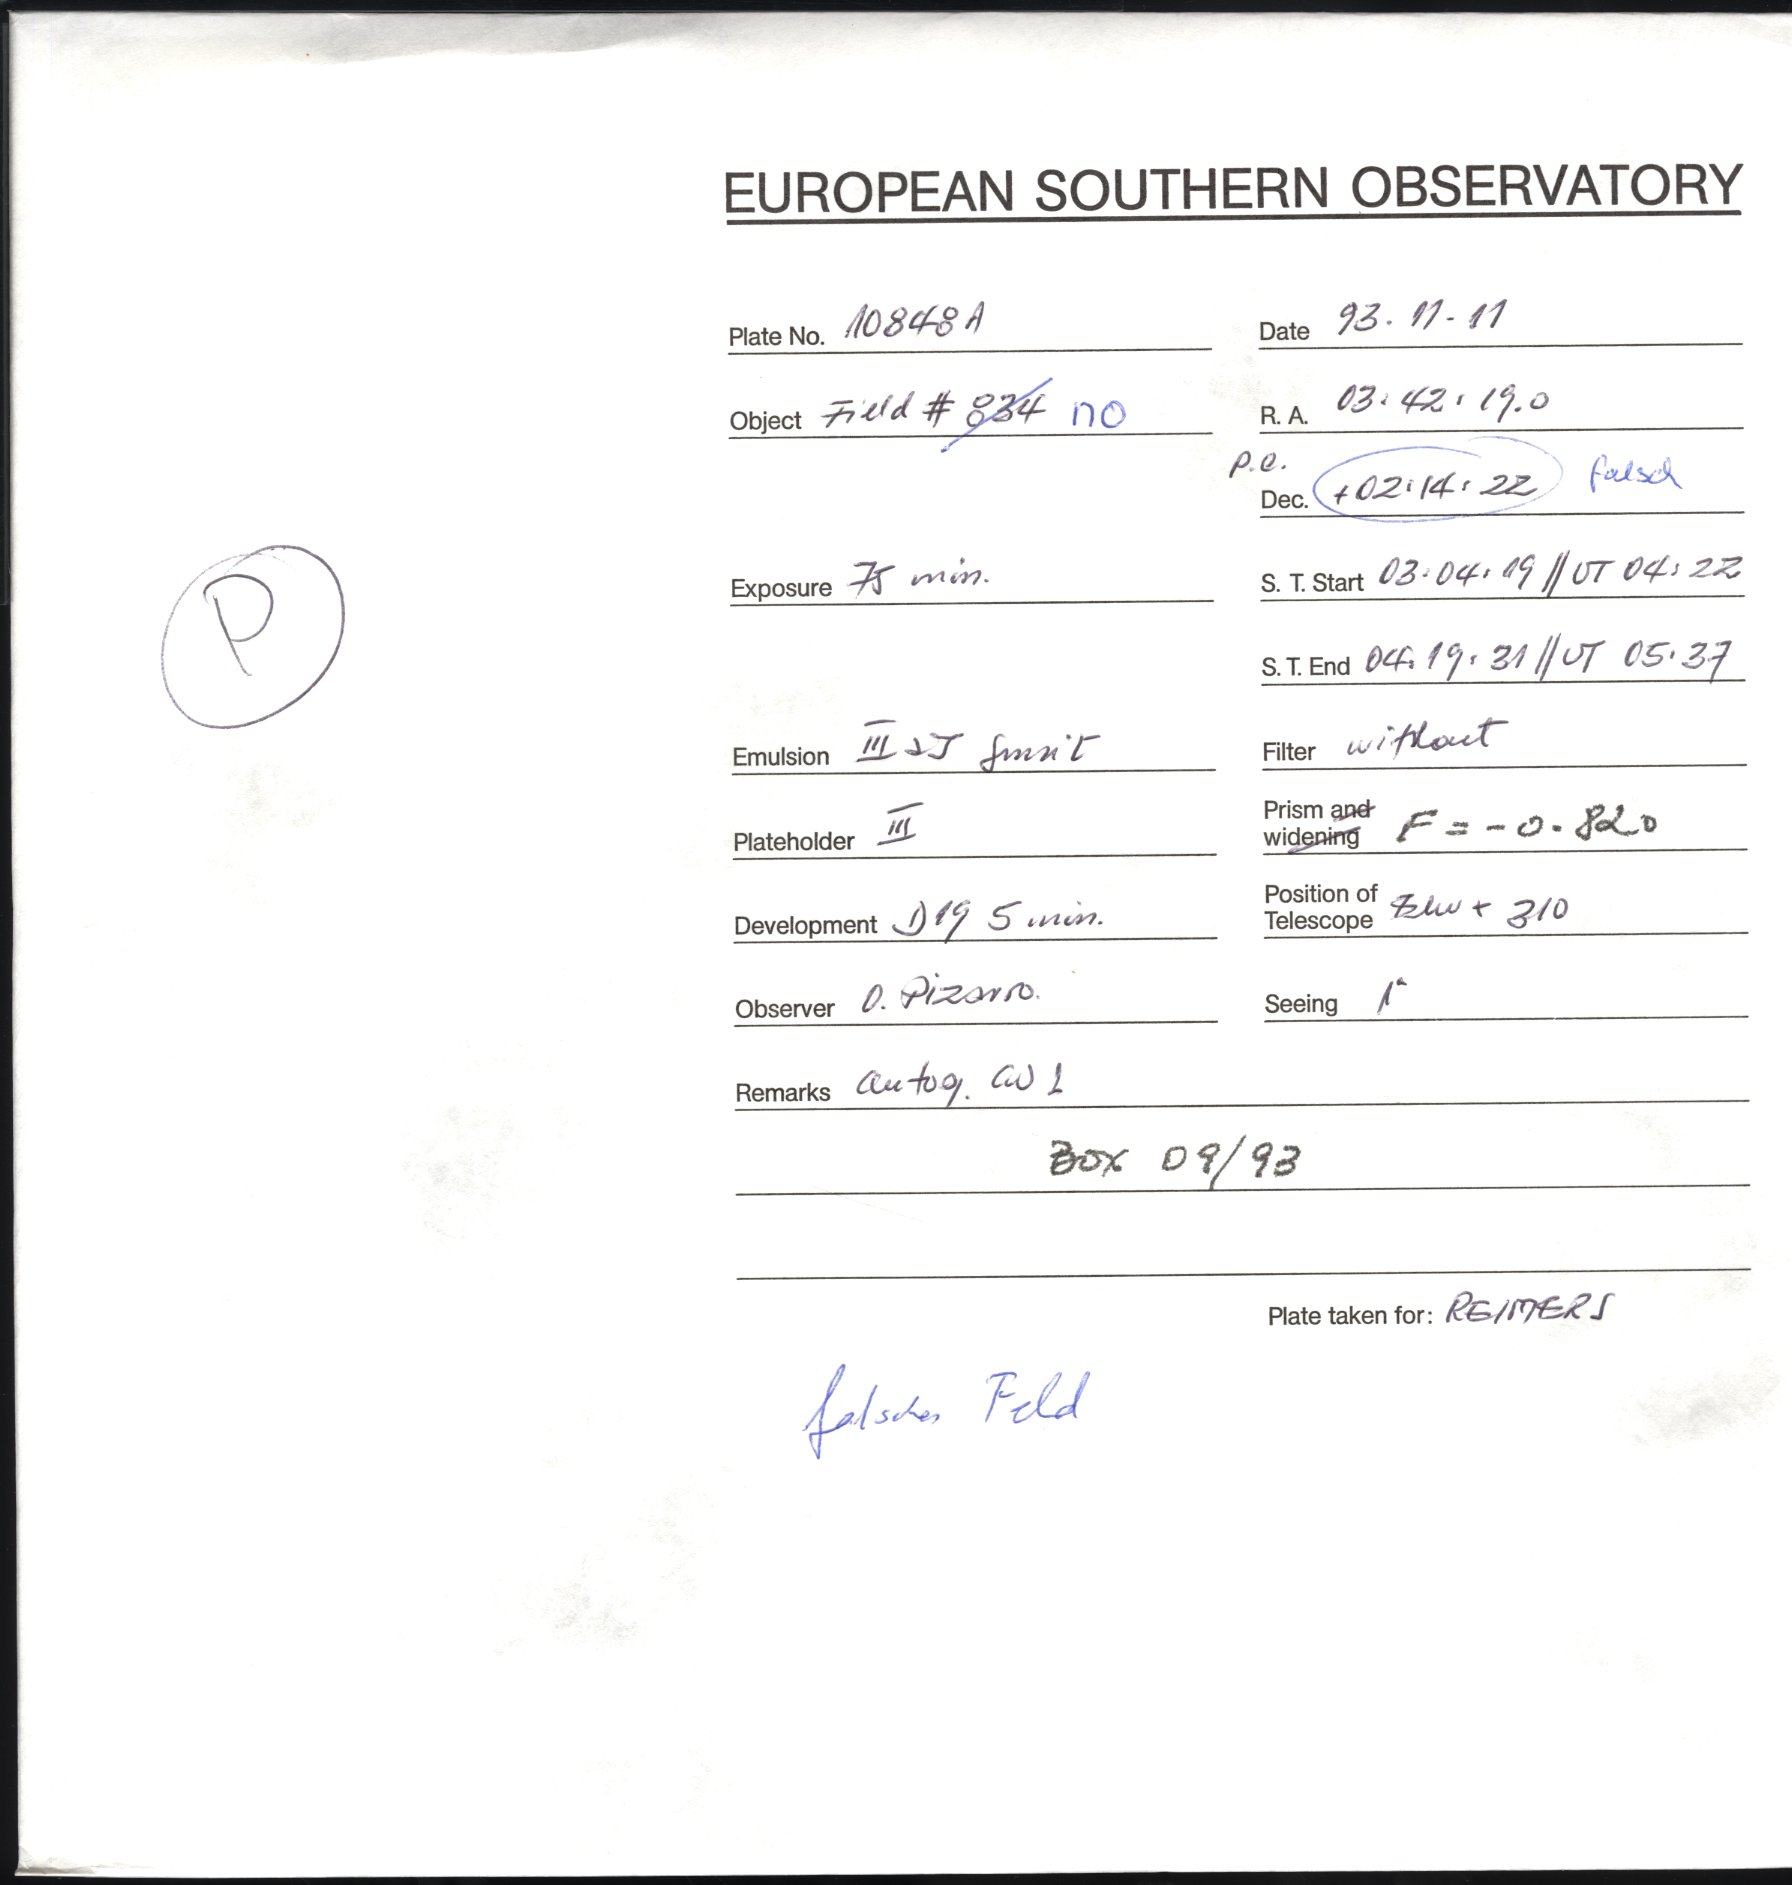 EUROPEAN SOUTHERN OBSERVATORY
Plate No. 10848A
Date 93.11-11
Object Field # 834 no
R. A. 03:42:19.0
p.e.
Dec. +02:14:22 falsch
P
Exposure 75 min.
S. T. Start 03:04:19 // UT 04:22
S. T. End 04:19:31 // UT 05:37
Emulsion III
Filter without
Plateholder III
Prism and
widening F = -0.820
Development D19 5 min.
Position of
Telescope + 310
Observer O. Pizarro.
Seeing 1"
Remarks autog.
Box 09/93
Plate taken for: REIMERS
falsches Feld